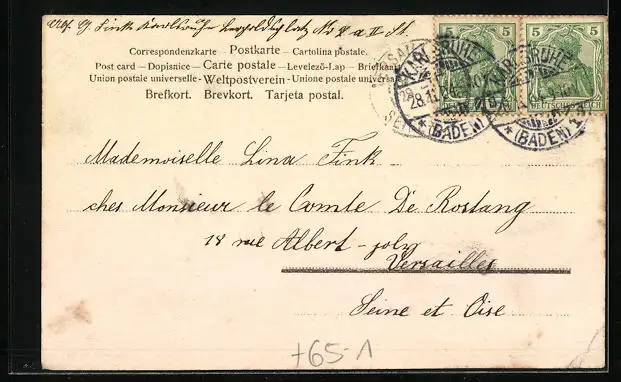 Abs. G. Fink Karlsruhe Leopoldsplatz No 7 a II St.
Correspondenzkarte – Postkarte – Cartolina postale.
Post card – Dopisnice – Carte postale – Levelező-Lap – Briefkaart
Union postale universelle – Weltpostverein – Unione postale universale
Brefkort. Brevkort. Tarjeta postal.
5 5 5 5
KARLSRUHE
28.11.
DEUTSCHES REICH
(BADEN)
KARLSRUHE
DEUTSCHES REICH
(BADEN) 1
Mademoiselle Lina Fink
ches Monsieur le Comte De Rostang
18 rue Albert - joly
Versailles
Seine et Oise
+65-1